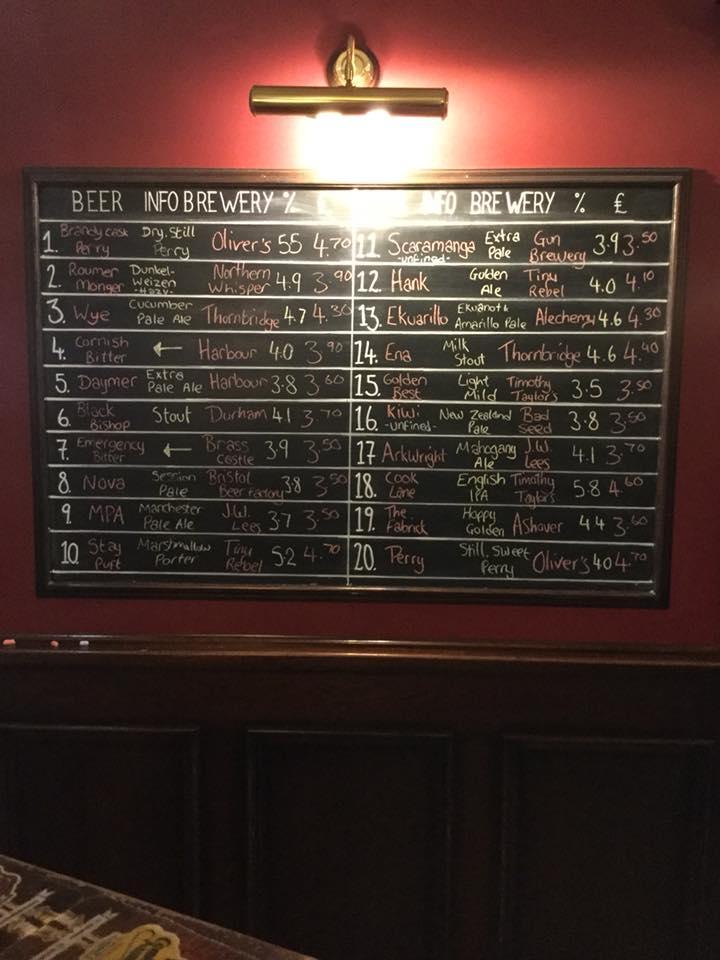 BEER INFO BREWERY % £ INFO BREWERY % £
1. Brandy cask Perry Dry, Still Perry Oliver's 5.5 4.70
2. Roumer Monger Dunkel-Weizen -Hazy- Northern Whisper 4.9 3.90
3. Wye Cucumber Pale Ale Thornbridge 4.7 4.30
4. Cornish Bitter ← Harbour 4.0 3.90
5. Daymer Extra Pale Ale Harbour 3.8 3.60
6. Black Bishop Stout Durham 4.1 3.70
7. Emergency Bitter ← Brass Castle 3.9 3.50
8. Nova Session Pale Bristol Beer Factory 3.8 3.50
9. MPA Manchester Pale Ale J.W. Lees 3.7 3.50
10. Stay Puft Marshmallow Porter Tiny Rebel 5.2 4.70
11. Scaramanga -unfined- Extra Pale Gun Brewery 3.9 3.50
12. Hank Golden Ale Tiny Rebel 4.0 4.10
13. Ekuarillo Ekuanot & Amarillo Pale Alechemy 4.6 4.30
14. Ena Milk Stout Thornbridge 4.6 4.40
15. Golden Best Light Mild Timothy Taylor's 3.5 3.50
16. Kiwi -unfined- New Zealand Pale Bad Seed 3.8 3.50
17. Arkwright Mahogany Ale J.W. Lees 4.1 3.70
18. Cook Lane English IPA Timothy Taylor's 5.8 4.60
19. The Fabrick Hoppy Golden Ashover 4.4 3.60
20. Perry Still, Sweet Perry Oliver's 4.0 4.70